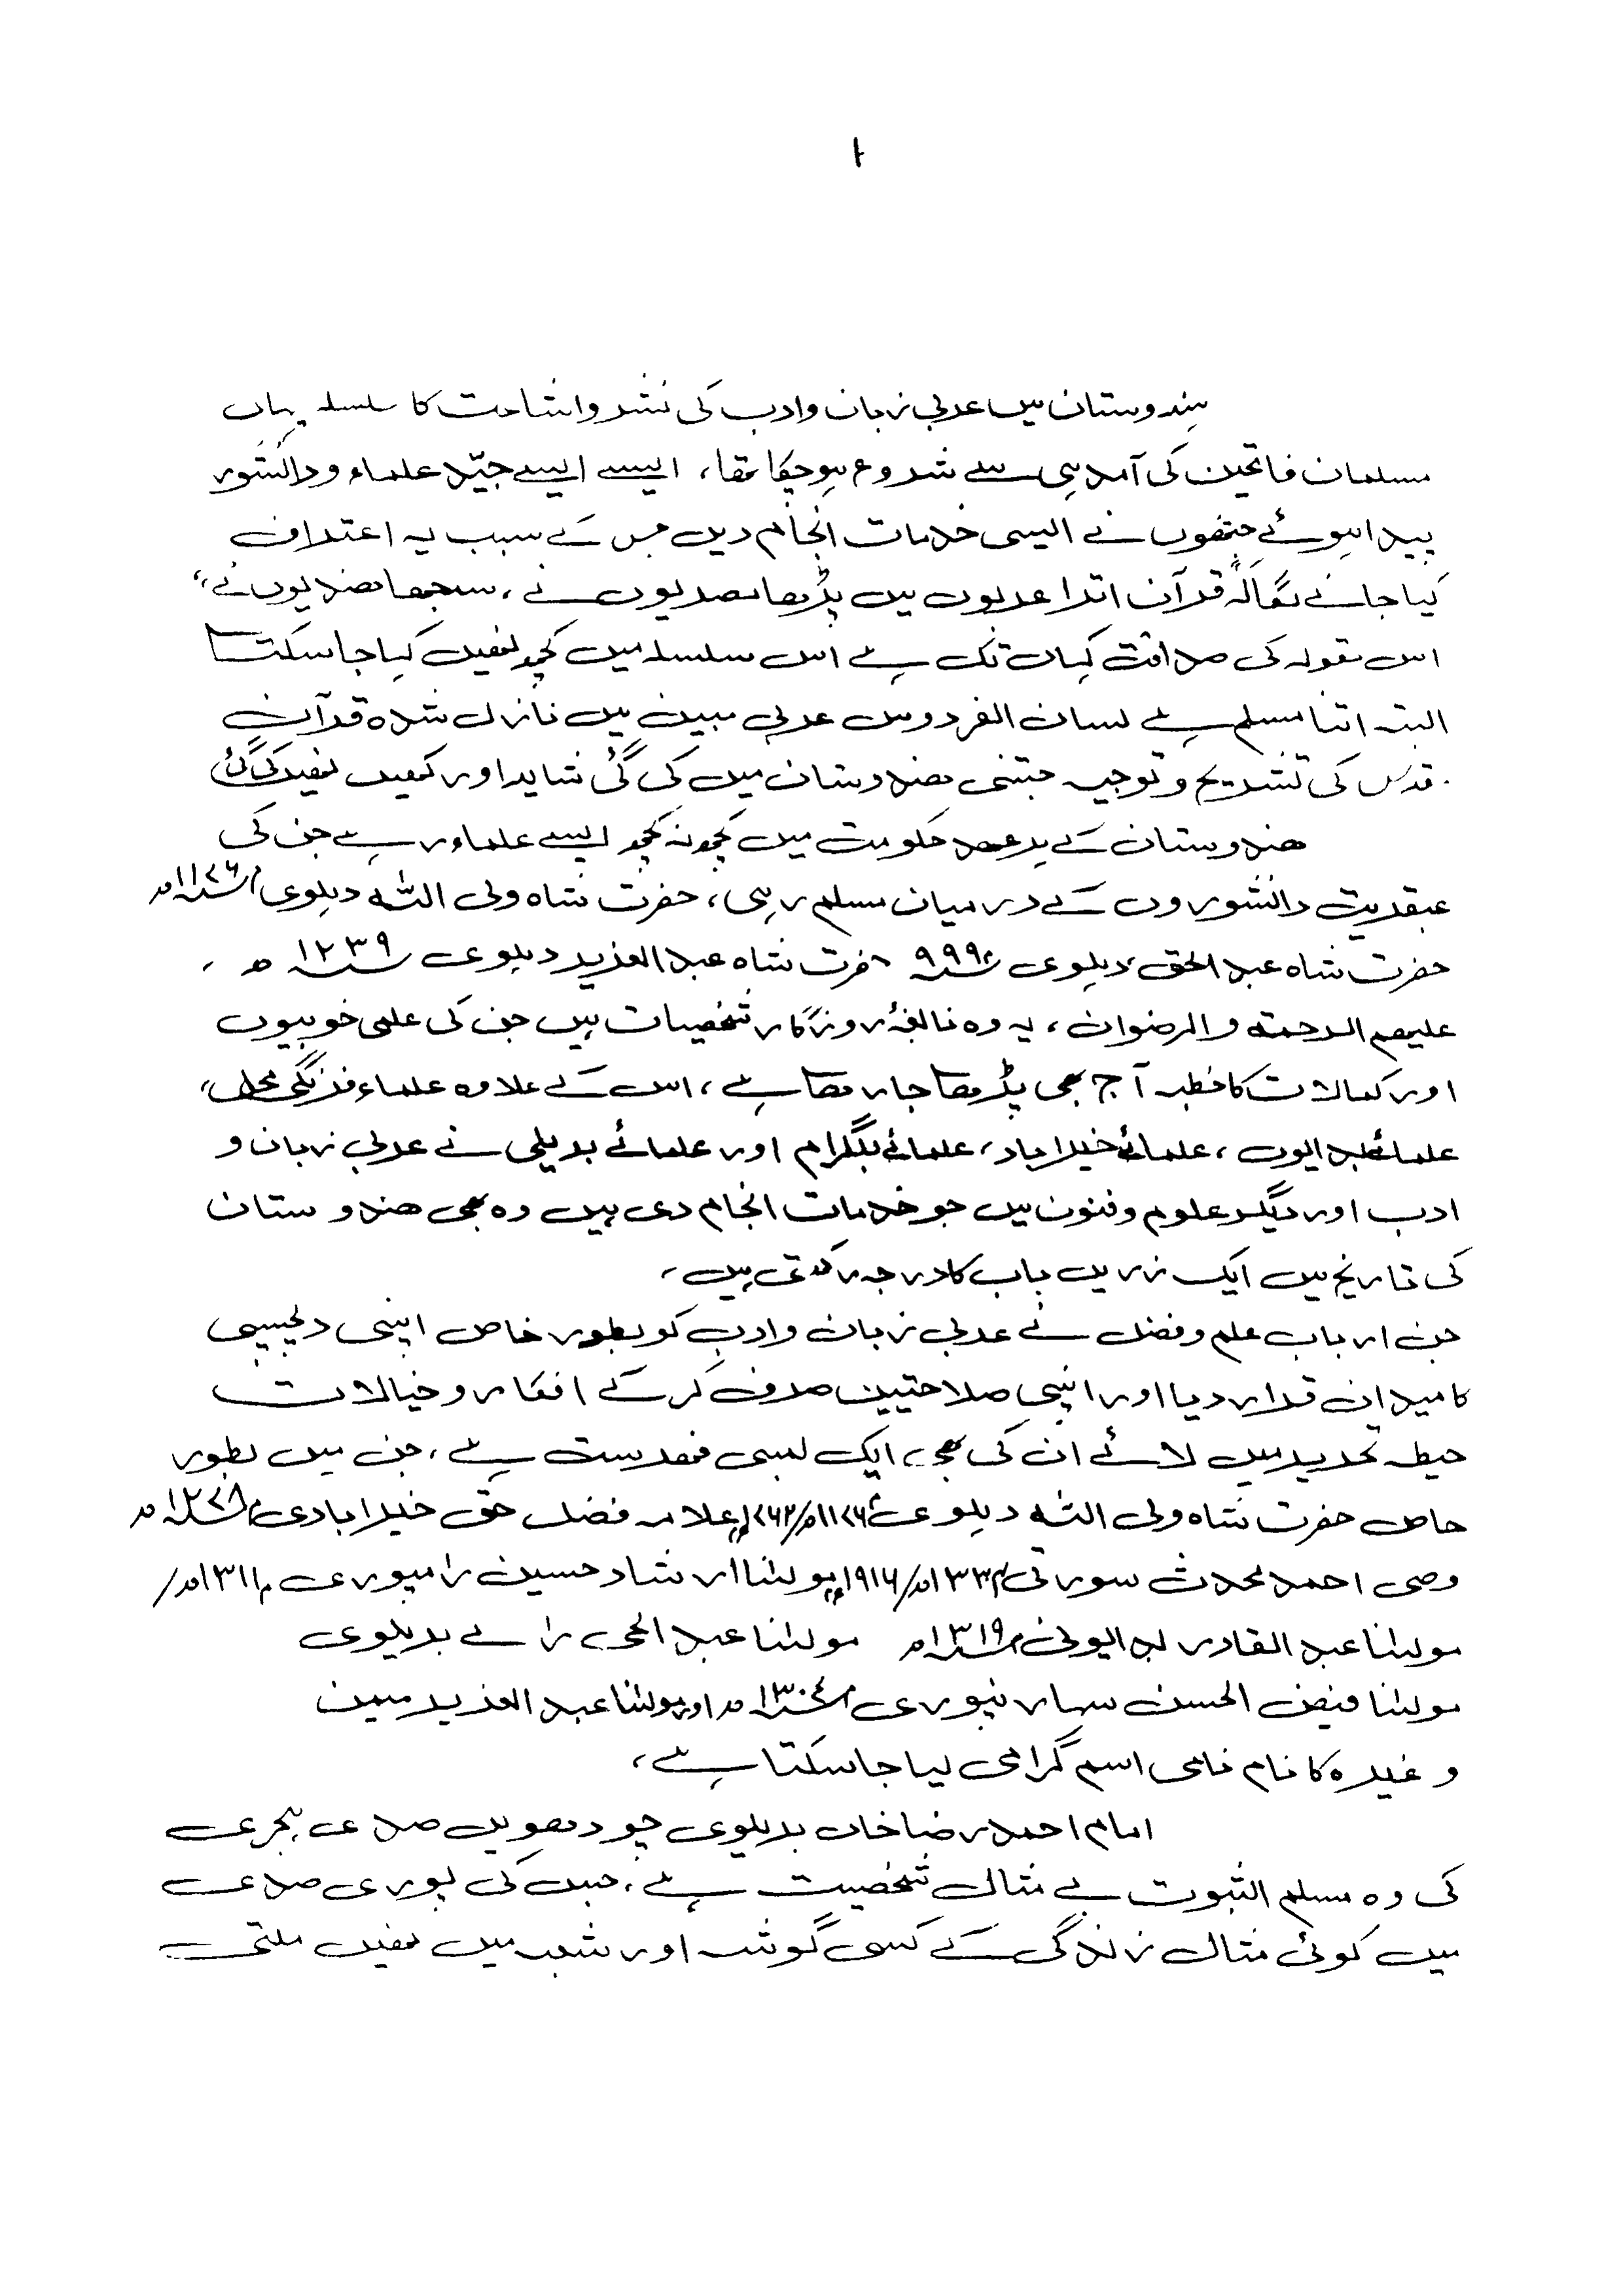 ۱
ہندوستان میں عربی زبان وادب کی نشر واشاعت کا سلسلہ یہاں
مسلمان فاتحین کی آمد ہی سے شروع ہوچکا تھا، ایسے ایسے جیّد علماء ودانشور
پیدا ہوئے جنھوں نے ایسی خدمات انجام دیں جس کے سبب یہ اعتراف
کیا جانے لگا کہ قرآن اترا عربوں میں پڑھا مصریوں نے، سمجھا ھندیوں نے،
اس مقولہ کی صداقت کہاں تک ہے اس سلسلہ میں کچھ نھیں کہا جاسکتا
البتہ اتنا مسلم ہے لسان الفردوس عربی مبین میں نازل شدہ قرآن
مقدس کی تشریح و توجیہ جتنی ھندوستان میں کی گئی شاید اور کھیں نھیں کی گئی
ھندوستان کے ہر عھد حکومت میں کچھ نہ کچھ ایسے علماء رہے جن کی
عبقریت دانشوروں کے درمیان مسلم رہی، حضرت شاہ ولی اللہ دہلوی م ۱۱۷۶ھ
حضرت شاہ عبد الحق دہلوی ۹۹۹ حضرت شاہ عبد العزیز دہلوی ۱۲۳۹ ھ ،
علیھم الرحمتہ والرضوان، یہ وہ نابغۂ روزگار شخصیات ہیں جن کی علمی خوبیوں
اور کمالات کا خطبہ آج بھی پڑھا جارھا ہے، اس کے علاوہ علماء فرنگی محل،
علمائے بدایوں، علمائے خیرآباد، علمائے بلگرام اور علمائے بریلی نے عربی زبان و
ادب اور دیگر علوم وفنون میں جو خدمات انجام دی ہیں وہ بھی ھندوستان
کی تاریخ میں ایک زریں باب کا درجہ رکھتی ہیں،
جن ارباب علم وفضل نے عربی زبان وادب کو بطور خاص اپنی دلچسپی
کا میدان قرار دیا اور اپنی صلاحتیں صرف کرکے افکار وخیالات
حیطہ تحریر میں لائے ان کی بھی ایک لمبی فھرست ہے، جن میں بطور
خاص حضرت شاہ ولی اللہ دہلوی م ۱۱۷۶ھ/۱۷۶۲ء علامہ فضل حق خیرابادی م ۱۲۷۸ھ
وصی احمد محدث سورتی م ۱۳۳۴ھ/۱۹۱۶ء مولٰنا ارشاد حسین رامپوری م ۱۳۱۱ھ/
مولٰنا عبد القادر بدایونی م ۱۳۱۹ھ مولٰنا عبد الحی رائے بریلوی
مولٰنا فیض الحسن سہارنپوری م ۱۳۰۴ھ اور مولٰنا عبد العزیز میمن
وغیرہ کا نام نامی اسم گرامی لیا جاسکتا ہے،
امام احمد رضا خاں بریلوی چودھویں صدی ہجری
کی وہ مسلم الثبوت بے مثال شخصیت ہے، جس کی پوری صدی
میں کوئی مثال زندگی کے کسی گوشہ اور شعبہ میں نھیں ملتی